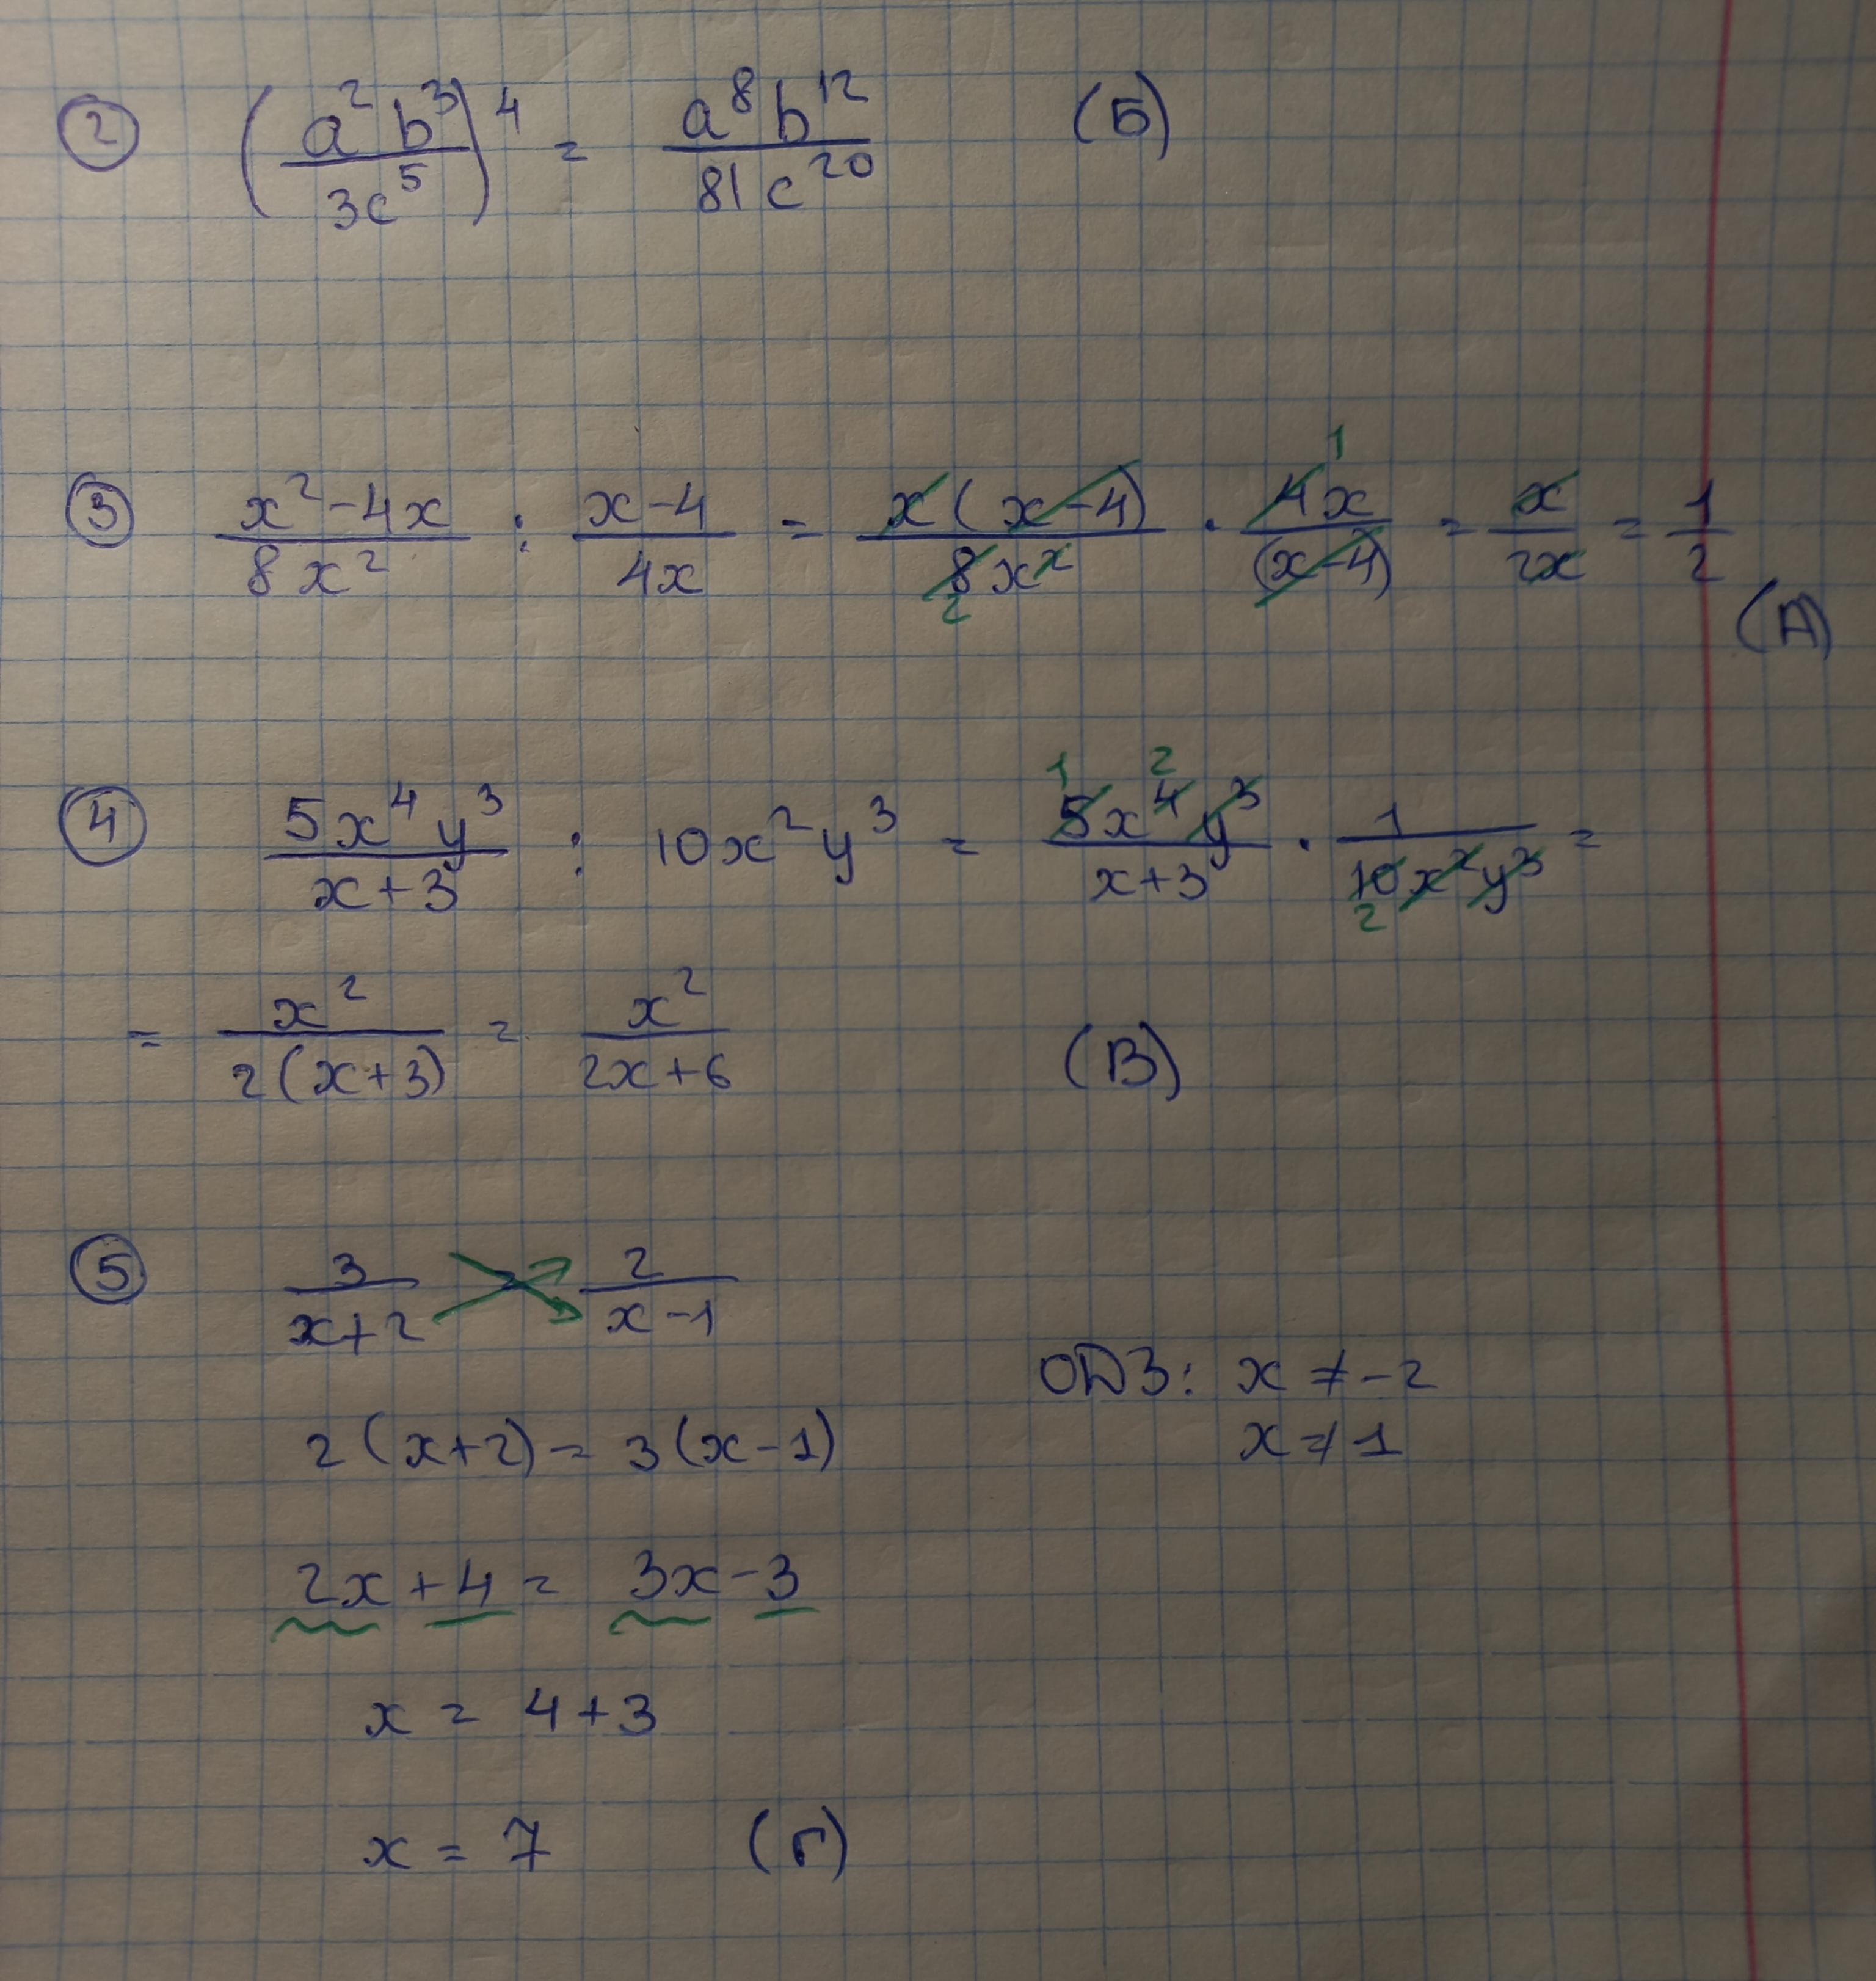 ② (a²b³/3c⁵)⁴ = a⁸b¹²/81c²⁰ (Б)
③ (x²-4x)/(8x²) : (x-4)/(4x) = x(x-4)/(8x²) · 4x/(x-4) = x/2x = 1/2
1
2
(Д)
④ 5x⁴y³/(x+3) : 10x²y³ = 5x⁴y³/(x+3) · 1/(10x²y³) =
1 2
2
= x²/(2(x+3)) = x²/(2x+6) (В)
⑤ 3/(x+2) 2/(x-1)
ОДЗ: x ≠ -2
x ≠ 1
2(x+2) = 3(x-1)
2x+4 = 3x-3
x = 4+3
x = 7 (Г)